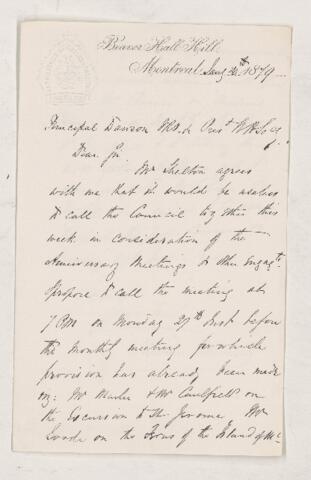 Beaver Hall Hill,
Montreal, Jany 1879
Principal Dawson
Dear Sir
Mr Shelton agrees
with me that it would be useless
to call the Council together this
week in consideration of the
Anniversary Meetings & other Engagts
I propose to call the meeting at
7 PM on Monday 27th Inst before
the monthly meeting for which
provision has already been made
Mr & Mr Caulfield on
the Excursion to St Jerome Mr
on the of the Island of